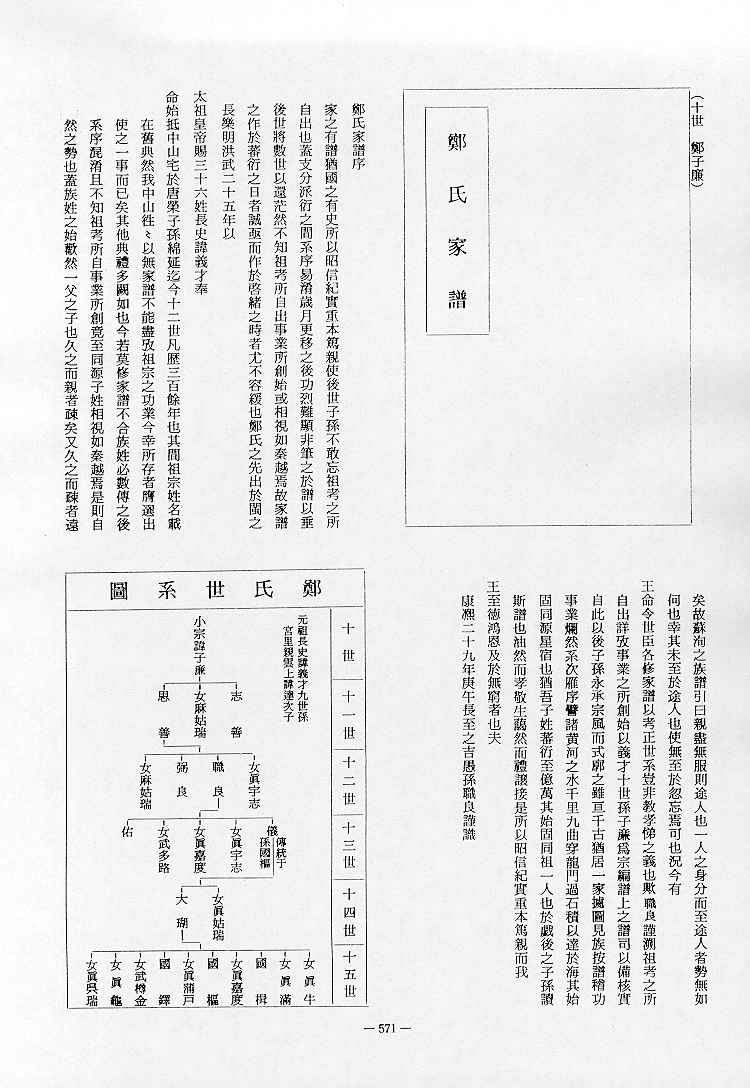 (十世 鄭子廉)
鄭氏家譜
鄭氏家譜序
家之有譜猶國之有史所以昭信紀實重本篤親使後世子孫不敢忘祖考之所
自出也蓋支分派衍之間系序易淆歲月更移之後功烈難顯非筆之於譜以垂
後世將數世以還茫然不知祖考所自出事業所創始或相視如秦越焉故家譜
之作於蕃衍之日者誠亟而作於啓緒之時者尤不容緩也鄭氏之先出於閩之
長樂明洪武二十五年以
太祖皇帝賜三十六姓長史諱義才奉
命始抵中山宅於唐榮子孫綿延迄今十二世凡歷三百餘年也其間祖宗姓名載
在舊典然我中山徃〻以無家譜不能盡攷祖宗之功業今幸所存者膺選出
使之一事而已矣其他典禮多闕如也今若莫修家譜不合族姓必數傳之後
系序混淆且不知祖考所自事業所創竟至同源子姓相視如秦越焉是則自
然之勢也蓋族姓之始歡然一父之子也久之而親者疎矣又久之而疎者遠
矣故蘇洵之族譜引曰親盡無服則途人也一人之身分而至途人者勢無如
何也幸其未至於途人也使無至於忽忘焉可也況今有
王命令世臣各修家譜以考正世系豈非教孝悌之義也歟職良謹溯祖考之所
自出詳攷事業之所創始以義才十世孫子廉爲宗編譜上之譜司以備核實
自此以後子孫永承宗風而式廓之雖亘千古猶居一家據圖見族按譜稽功
事業爛然系次雁序譬諸黃河之水千里九曲穿龍門過石積以達於海其始
固同源星宿也猶吾子姓蕃衍至億萬其始固同祖一人也於戲後之子孫讀
斯譜也油然而孝敬生藹然而禮讓接是所以昭信紀實重本篤親而我
王至德鴻恩及於無窮者也夫
康熙二十九年庚午長至之吉愚孫職良謹識
鄭氏世系圖
十世
元祖長史諱義才九世孫
宮里親雲上諱達次子
小宗諱子廉
十一世
志善
女麻姑瑞
思善
十二世
女眞宇志
職良
弼良
女麻姑瑞
十三世
儀
傳統于
孫國樞
女眞宇志
女眞嘉度
女武多路
佑
十四世
女眞姑瑞
大瑚
十五世
女眞牛
女眞滿
國楫
女眞嘉度
國樞
女眞蒲戸
國鐸
女武樽金
女眞龜
女眞呉瑞
— 571 —